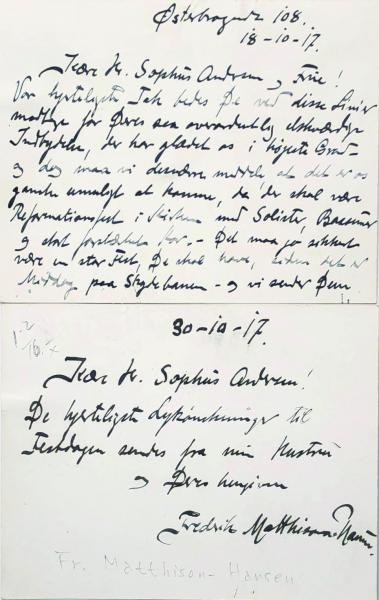 Østerbrogade 108.
18-10-17.
Kære Hr. Sophus Andersen og Frue!
Vor hjerteligste Tak bedes De ved disse Linier
modtage for Deres saa overordentlig elskværdige
Indbydelse, der har glædet os i højeste Grad –
og dog maa vi desværre meddele, at det er os
ganske umuligt at komme, da der skal være
Reformationsfest i Kirken med Solister, Basuner
og stort forstærket Kor. – Det maa jo sikkert
være en stor Fest, De skal have, siden det er
Middag paa Skydebanen – og vi sender Dem
30-10-17.
Kære Hr. Sophus Andersen!
De hjerteligste Lykønskninger til
Festdagen sendes fra min Hustru
og Deres hengivne
Fredrik Matthison-Hansen.
Fr. Matthison-Hansen